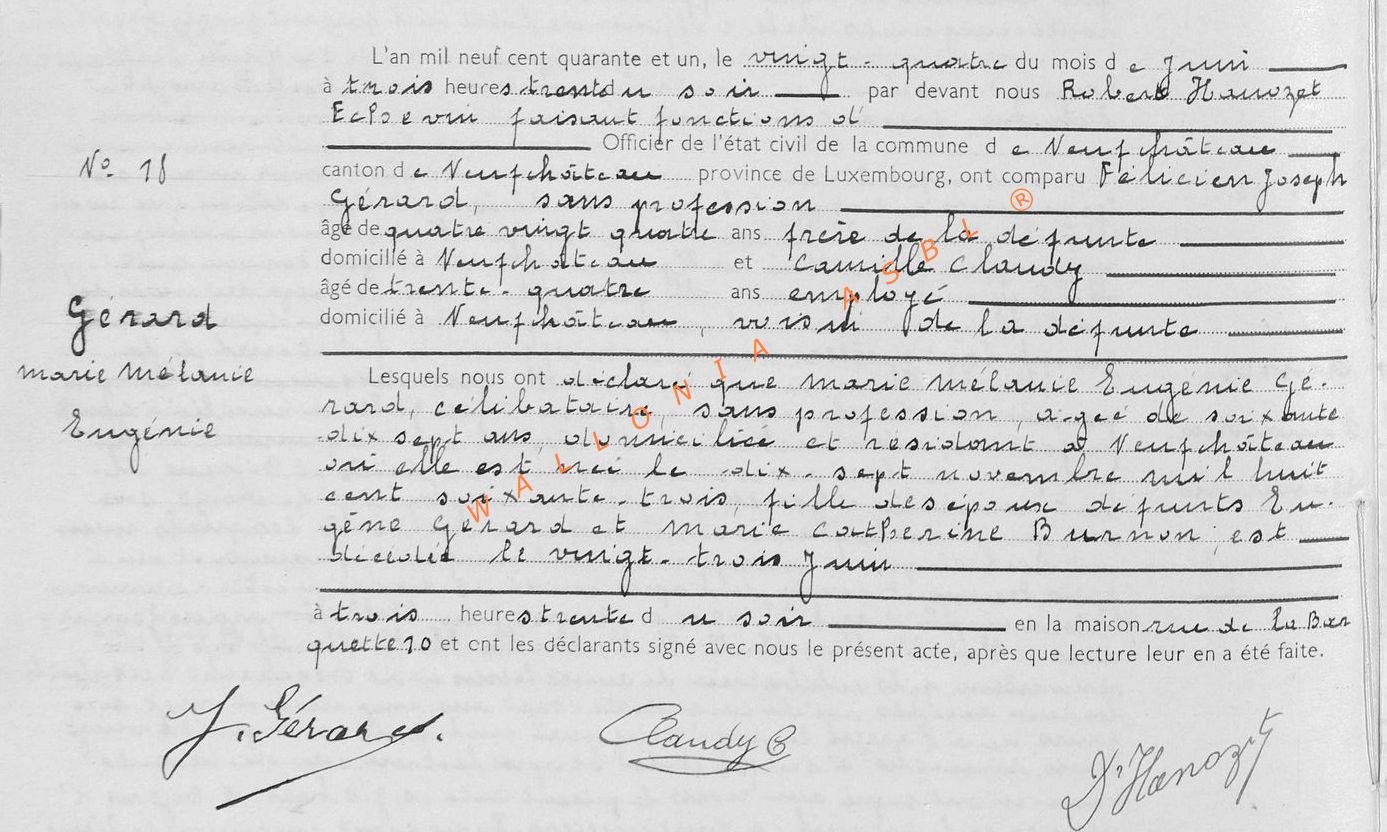 L'an mil neuf cent quarante et un, le vingt-quatre du mois de Juin
à trois heures trente du soir par devant nous Robert Hanozet
Echevin faisant fonctions d'
Officier de l'état civil de la commune de Neufchâteau
N° 18
canton de Neufchâteau province de Luxembourg, ont comparu Félicien Joseph
Gérard, sans profession
âgé de quatre vingt quatre ans frère de la défunte
domicilié à Neufchâteau et Camille Claudy
âgé de trente-quatre ans employé
Gérard
domicilié à Neufchâteau, voisin de la défunte
marie Mélanie
Eugénie
Lesquels nous ont déclaré que marie mélanie Eugénie Gé-
rard, célibataire, sans profession, agée de soixante
dix sept ans, domiciliée et résidant à Neufchâteau
où elle est née le dix-sept novembre mil huit
cent soixante-trois, fille des époux défunts Eu-
gène Gérard et marie catherine Burnon, est
décédée le vingt-trois Juin
à trois heures trente du soir en la maison rue de la Ban
quette 10 et ont les déclarants signé avec nous le présent acte, après que lecture leur en a été faite.
J. Gérard.
Claudy C
Dr Hanozet
WALLONIA ASBL ®